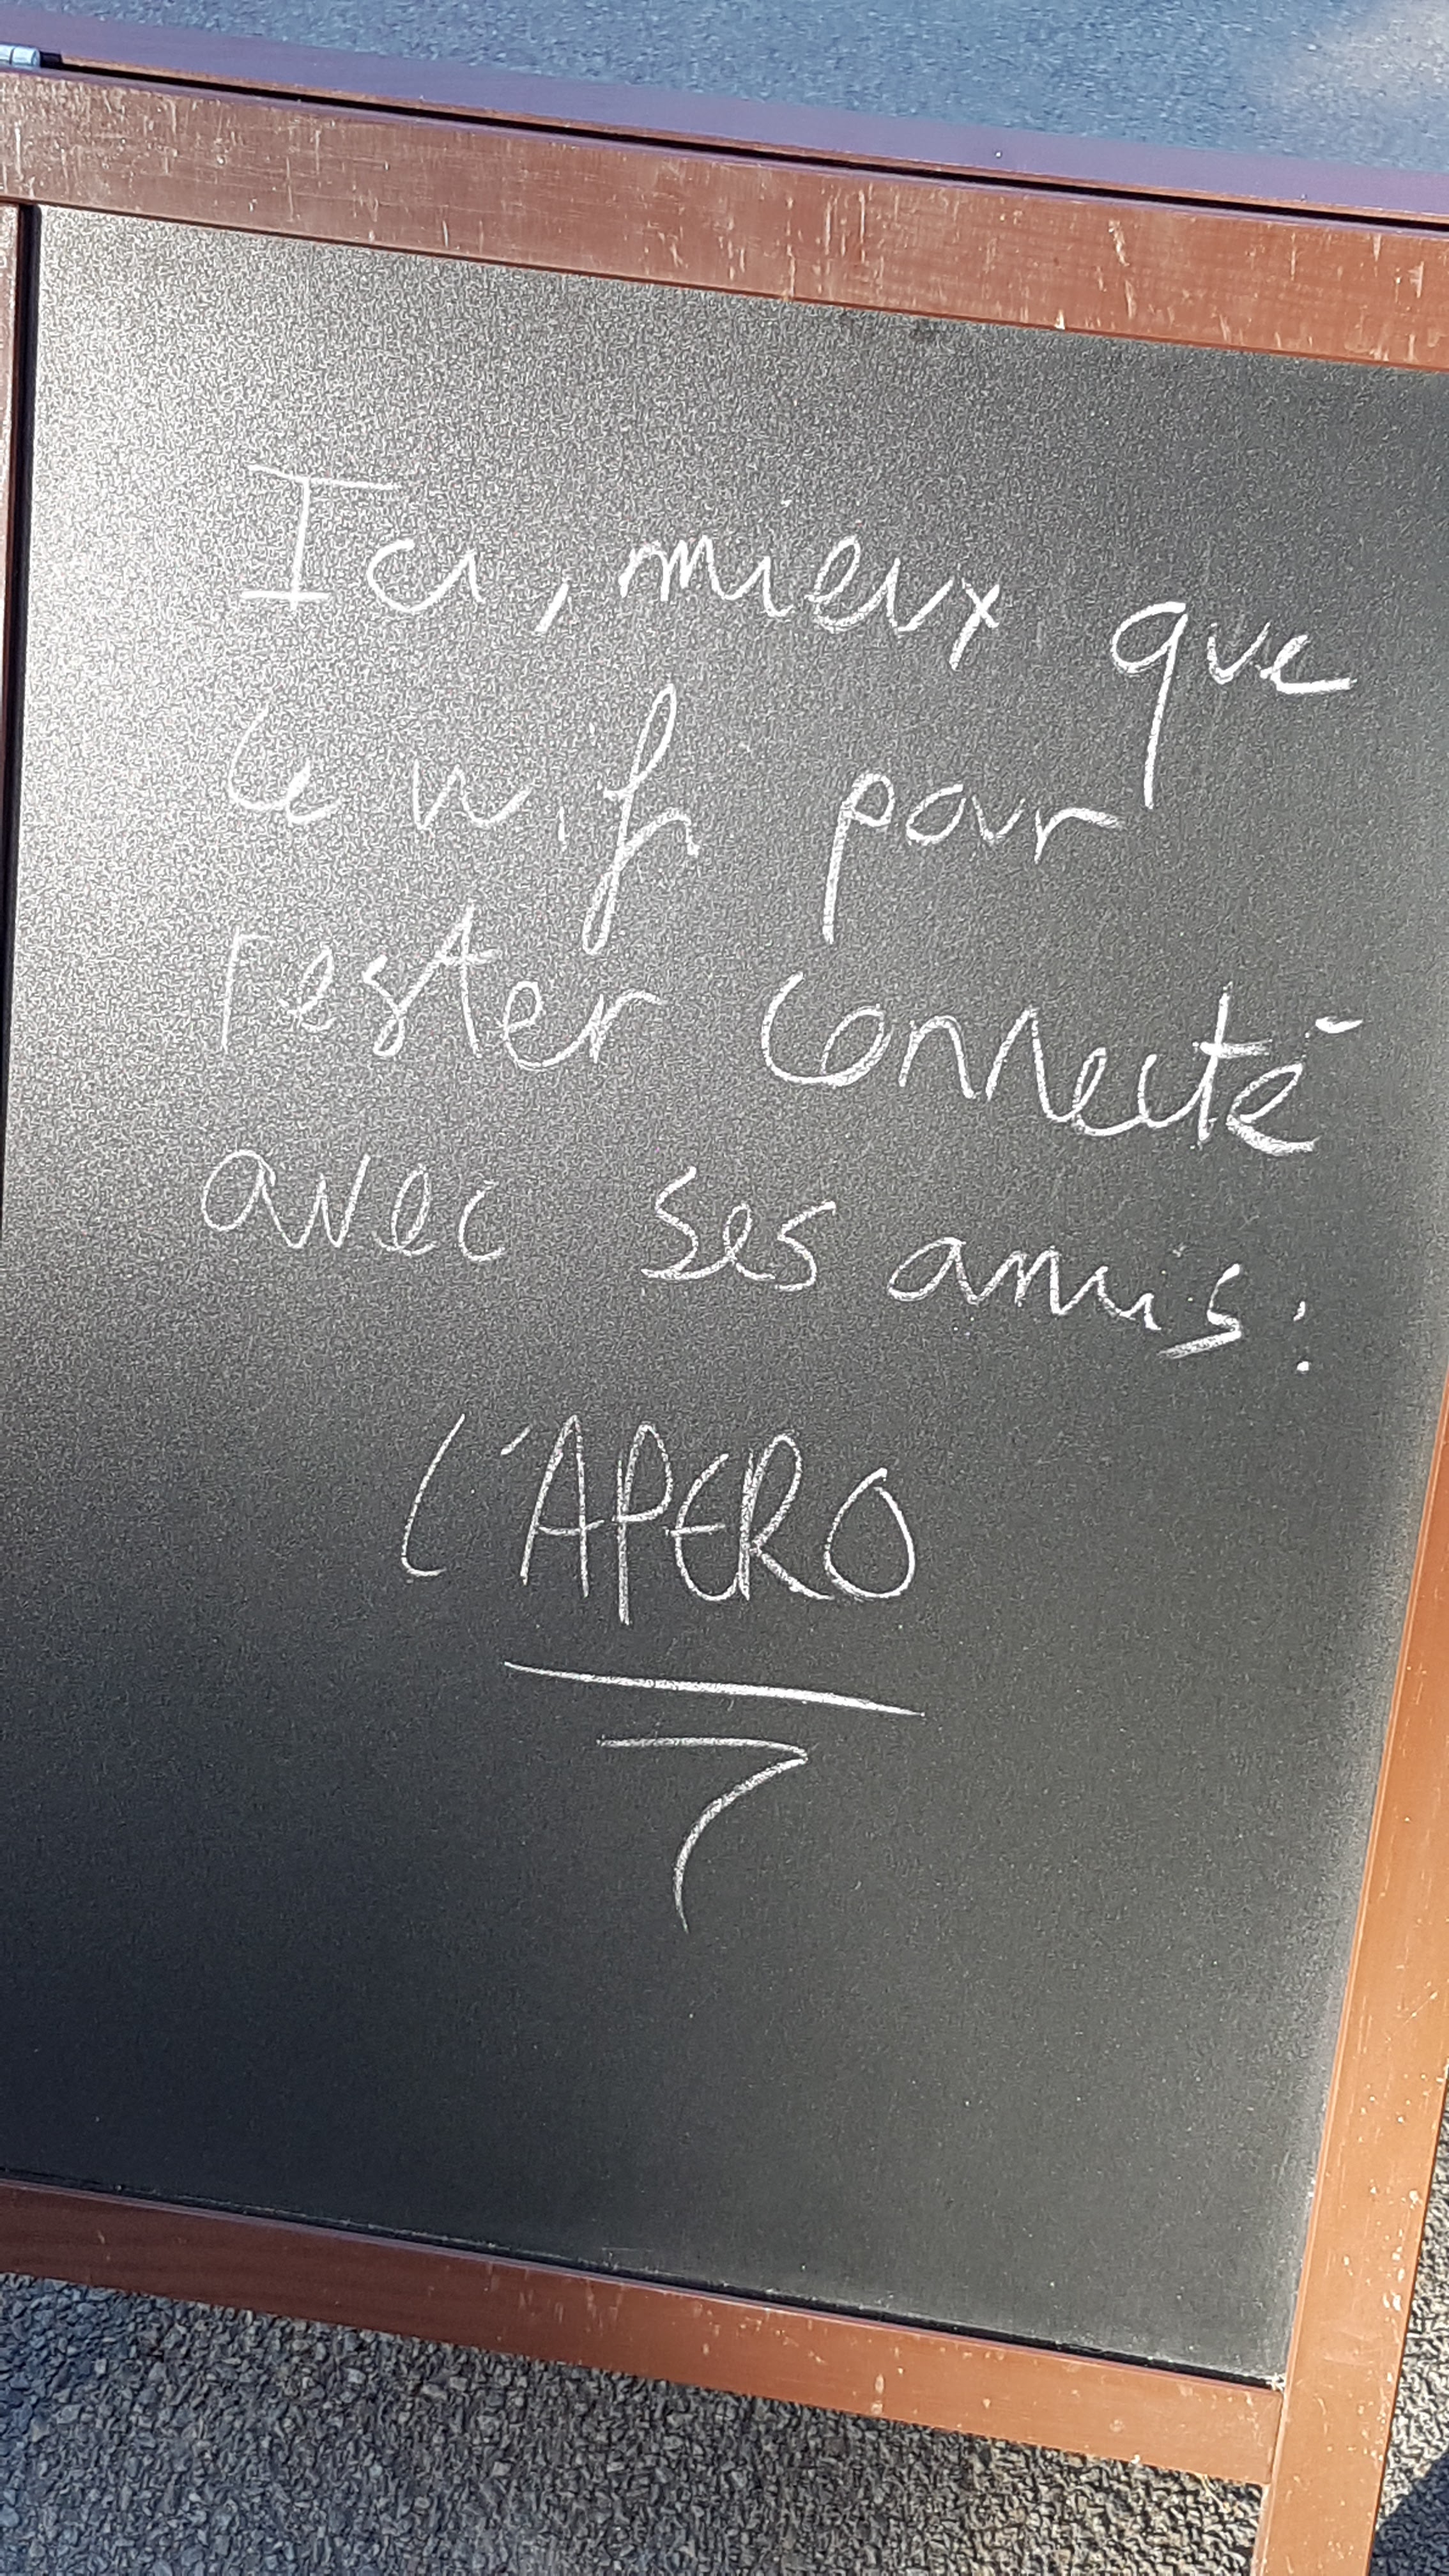 Ici, mieux que
le wifi pour
rester connecté
avec ses amis :
L'APERO